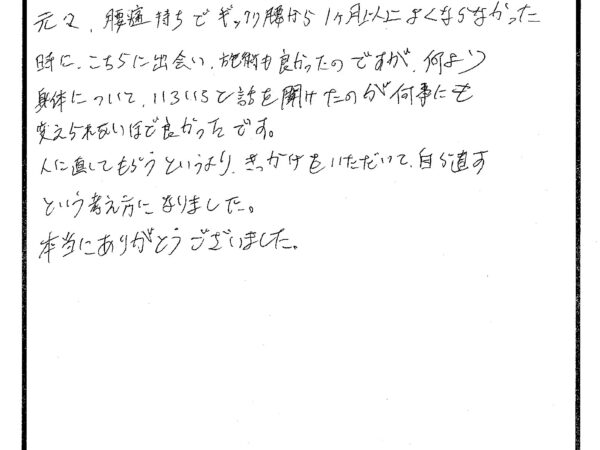 元々、腰痛持ちでギックリ腰から1ヶ月以上によくならなかった
時に、こちらに出会い、施術も良かったのですが、何より
身体について、いろいろと話を聞けたのが何事にも
変えられないほど良かったです。
人に直してもらうというより、きっかけをいただいて、自ら直す
という考え方になりました。
本当にありがとうございました。